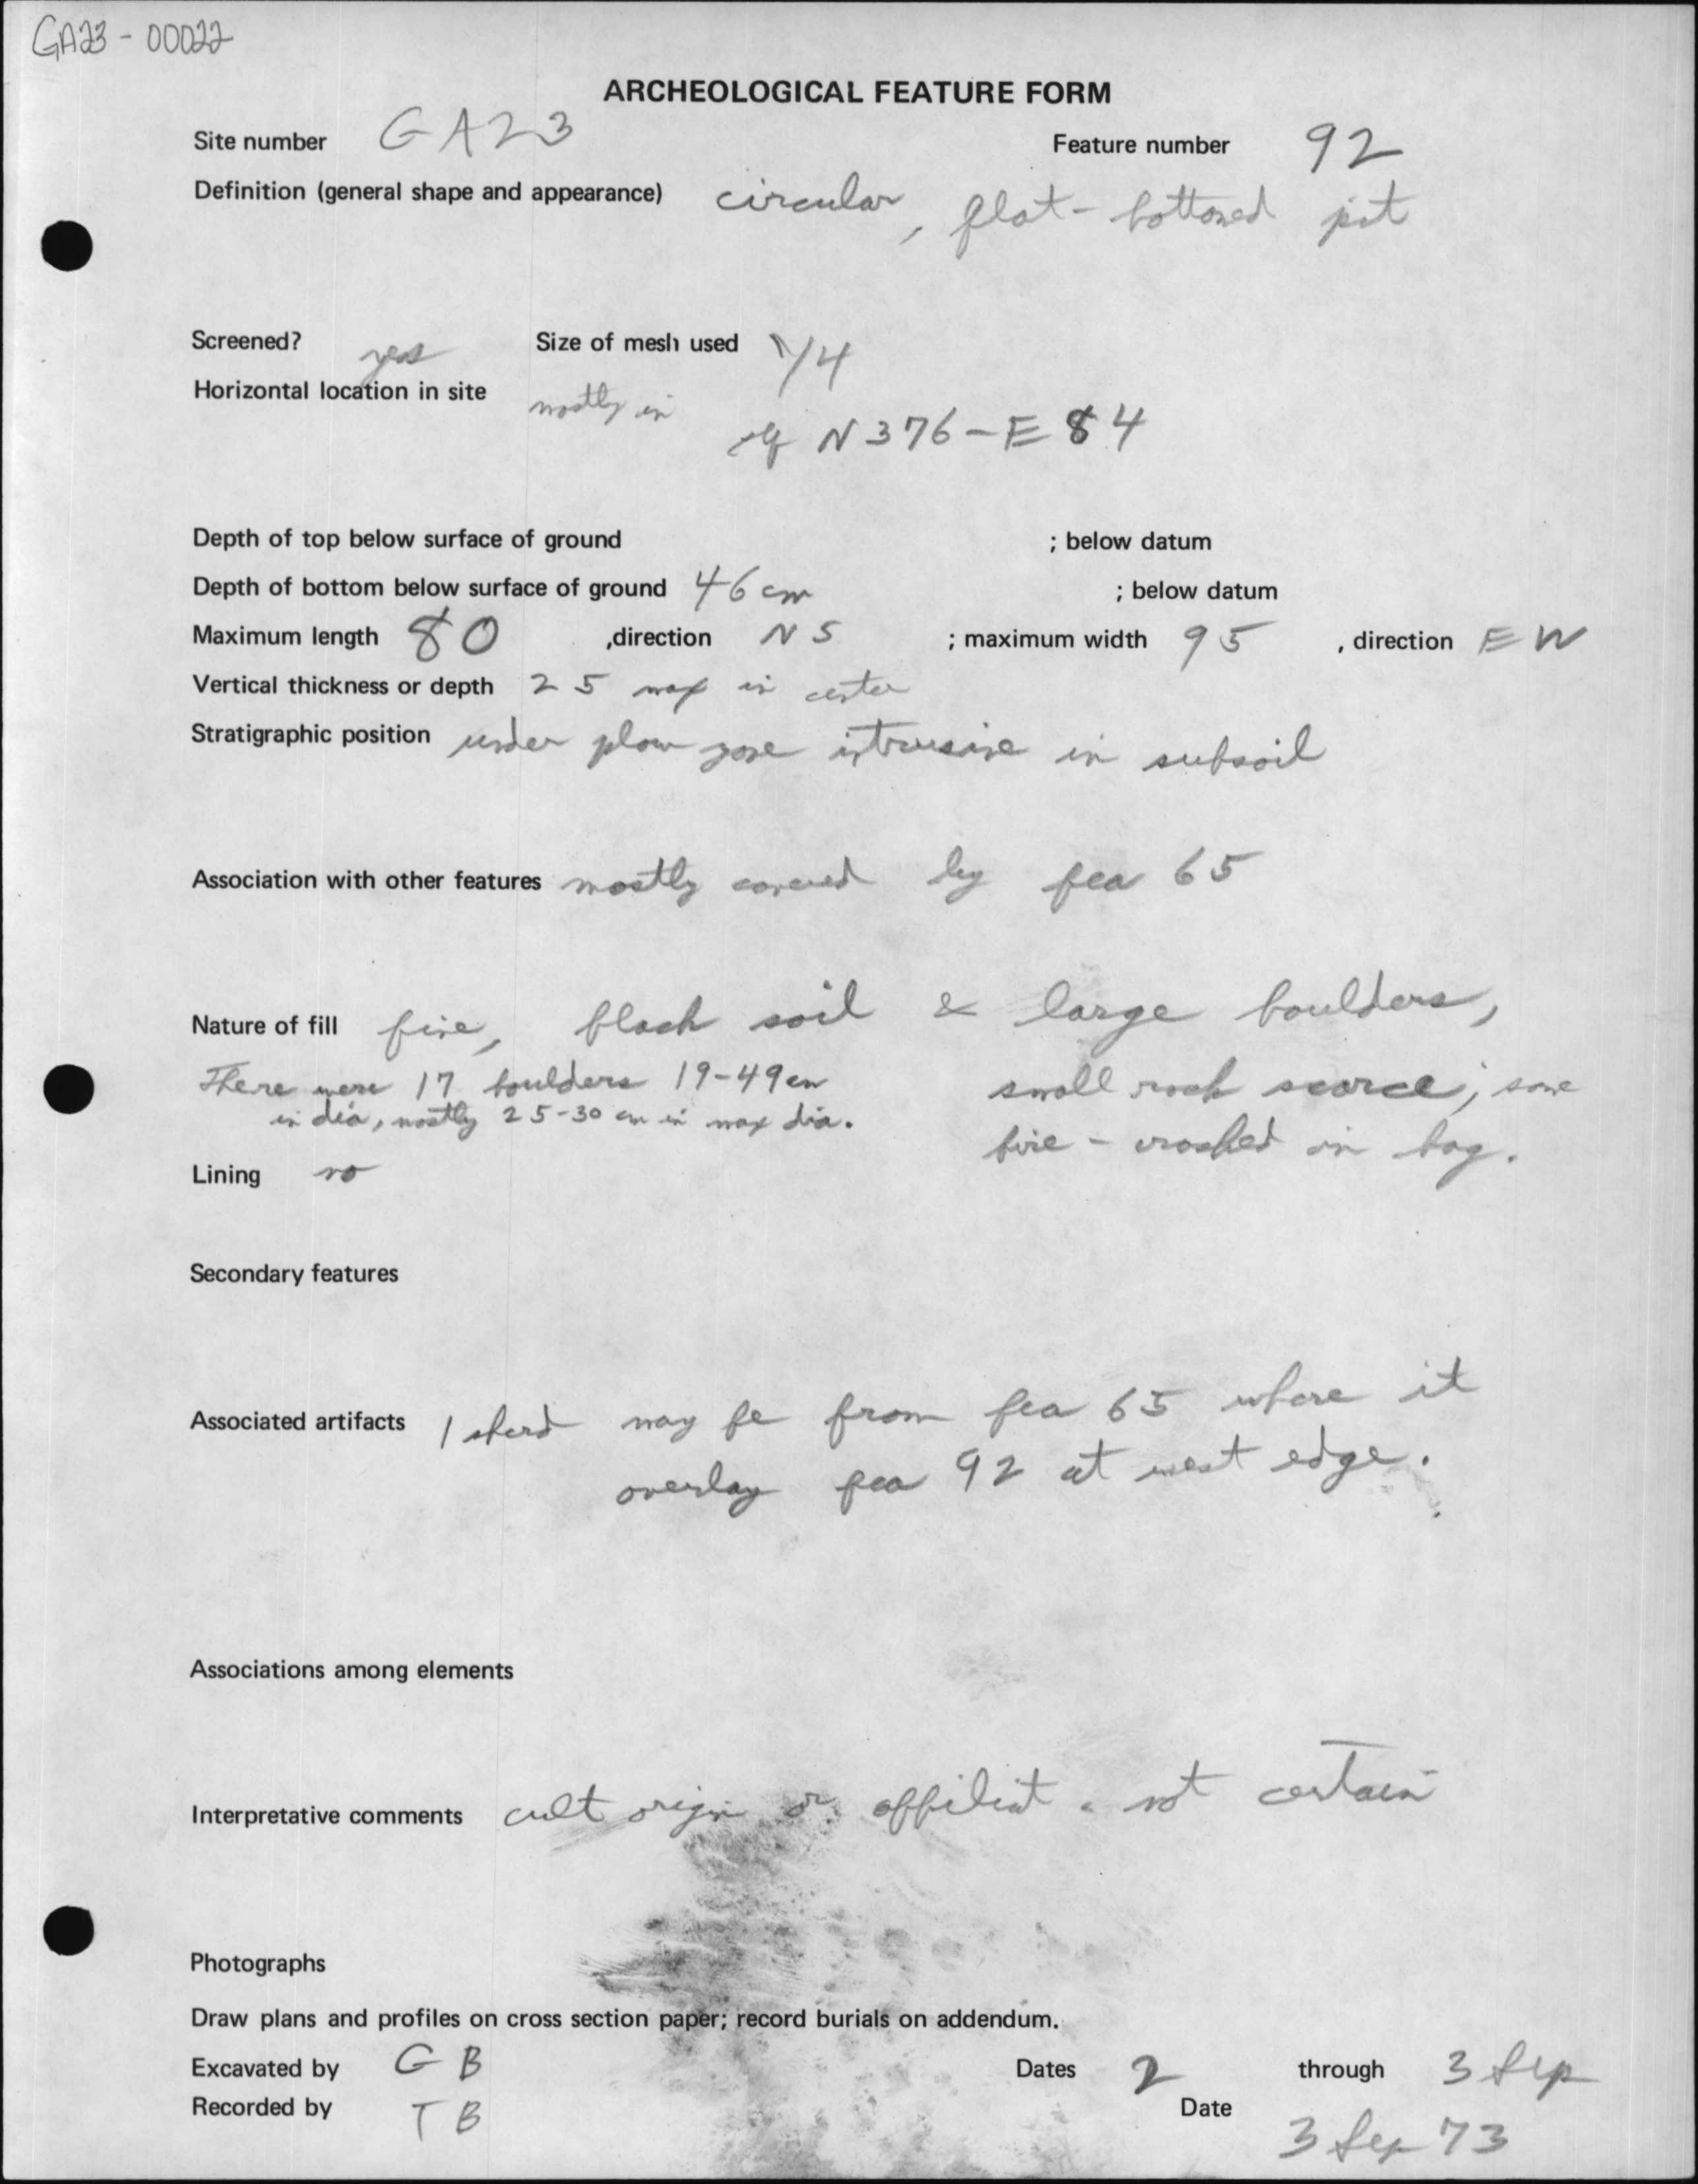 GA23-00022
ARCHEOLOGICAL FEATURE FORM
Site number GA23 Feature number 92
Definition (general shape and appearance) circular, flat-bottomed pit
Screened? yes Size of mesh used 1/4
Horizontal location in site mostly in
sq N376-E84
Depth of top below surface of ground ; below datum
Depth of bottom below surface of ground 46 cm ; below datum
Maximum length 80 ,direction NS ; maximum width 95 , direction EW
Vertical thickness or depth 25 max in center
Stratigraphic position under plow zone intrusive in subsoil
Association with other features mostly covered by fea 65
Nature of fill fine, black soil & large boulders,
There were 17 boulders 19-49 cm small rock scarce; some
in dia, mostly 25-30 cm in max dia. fire-cracked in bag.
Lining no
Secondary features
Associated artifacts 1 sherd may be from fea 65 where it
overlay fea 92 at west edge.
Associations among elements
Interpretative comments cult origin or affiliat. not certain
Photographs
Draw plans and profiles on cross section paper; record burials on addendum.
Excavated by GB Dates 2 through 3 Sep
Recorded by TB Date 3 Sep 73